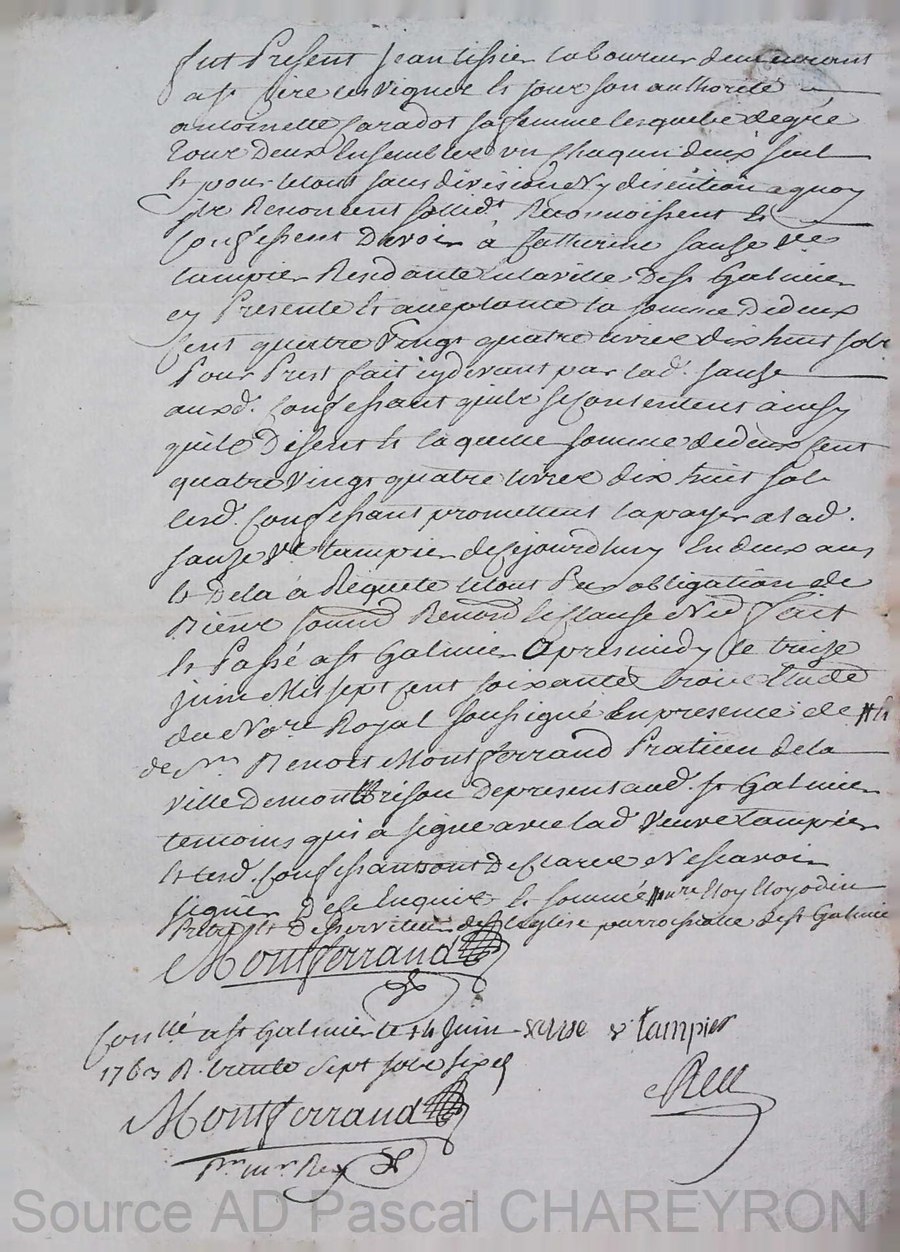 fut Present Jean tissier laboureur demeurant
a st Cire les vignes Et pour son authorité
antoinette Caradot sa femme lesquels de gré
tous Deux Ensembles un Chaqun deux seul
Et pour letout sans division Ny disention a quoy
ils Renoncent sollidt Reconnoissent Et
Confessent Devoir à Catherine sauze vve
tampier Residante en laville De st Galmier
cy Presente Et acceptante la somme de deux
cent quatre vingt quatre livres dix huit sols
Pour Prest fait cydevant par lad. sauze
auxd. Confessant quils se Contentent ainsy
quils Disent Et laquelle somme de deux Cent
quatre vingt quatre livres dix huit sols
lesd. Confessant promettent la payer a lad.
sauze vve tampier de cejourdhuy En deux ans
Et Dela à Requete letout Par obligation de
Biens soumd Renond Et Clause Ned fait
Et Passé a st Galmier Apres midy le treize
juin Mil sept cent soixante trois Etude
du Nore Royal soussigné En presence de
de sr Benoit Montferrand Praticien de la
ville De montbrison De present aud. st Galmier
temoins qui a signé avec lad. veuve tampier
Et lesd. Confessant ont Declarés Ne scavoir
signer De ce Enquis Et sommé
Pretre Et Desserviteur de l'Eglise parroissialle de st Galmier
Montferrand
Conllé a st Galmier le 14 Juin sause v tampier
1763 R. trente sept sols six d
Rey
Montferrand
Pr mr Rey
Source AD Pascal CHAREYRON